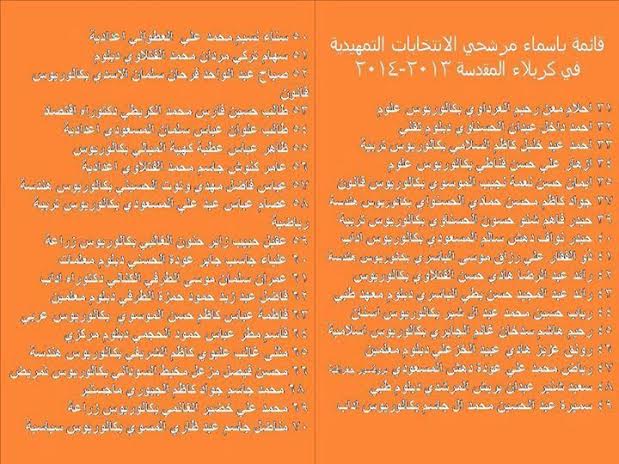 قائمة باسماء مرشحي الانتخابات التمهيدية
في كربلاء المقدسة ٢٠١٣-٢٠١٤
٣١ احلام معن رحيم العرداوي بكالوريوس علوم
٣٢ احمد داخل عبدان الحسناوي دبلوم تقني
٣٣ احمد عبد خليل كاظم السلامي بكالوريوس تربية
٣٤ ازهار علي حسن بكالوريوس علوم
٣٥ ايمان حسن نعمة نجيب الموسوي بكالوريوس قانون
٣٧ جواد كاظم محسن حمادي الحسناوي بكالوريوس هندسة
٣٩ حيدر فاهم شنو حسون الحسناوي بكالوريوس تربية
٤٠ حيدر نواف دهش سالم المسعودي بكالوريوس اداب
٤١ ذو الفقار علي رزاق موسى الياسري بكالوريوس هندسة
٤٢ رائد عبد الرضا هادي حسن الفتلاوي بكالوريوس
٤٣ رائد عبد المجيد حسن علي الياسري دبلوم معهد طبي
٤٤ رباب حسين محمد عبد ال شبر بكالوريوس اسنان
٤٥ رحيم هاشم سدخان غانم الجابري بكالوريوس اسلامية
٤٦ رونق عزيز هادي عبد الخزعلي دبلوم معلمين
٤٧ رياض محمد علي عودة دهش المسعودي
٤٨ سعيد شنبر عبدان بريش المرشدي دبلوم طبي
٤٩ سميرة عبد الحسين محمد ال جاسم بكالوريوس اداب
٥٠ سناء نسيم محمد علي العطواني اعدادية
٥١ سهام تركي مردان محمد الفتلاوي دبلوم
٥٢ صباح عبد الواحد فرحان سلمان الاسدي بكالوريوس
قانون
٥٣ طالب حسين فارس محمد الكريطي دكتوراه اقتصاد
٥٤ طالب علوان عباس سلمان المسعودي اعدادية
٥٥ ظاهر عباس عطية كهية بكالوريوس
٥٦ عامر كنوش جاسم محمد الفتلاوي اعدادية
٥٧ عباس فاضل مهدي الحسيني بكالوريوس هندسة
٥٨ عصام عباس عبد علي المسعودي بكالوريوس تربية
رياضية
٥٩ عقيل حبيب زاير حنون الغالبي بكالوريوس زراعة
٦٠ علياء جاسب جابر عودة الحسني دبلوم معلمات
٦١ عمران سلمان موسى الطرفي الكناني دكتوراه اداب
٦٢ فاضل عبد زيد حمود حمزة الطرفي دبلوم معلمين
٦٣ فاطمة عباس كاظم حسن الموسوي بكالوريوس عربي
٢٤ قاسم مطر عباس حمود الحجمي دبلوم مركزي
٢٥ مثنى غالب عليوي كاظم الشريفي بكالوريوس هندسة
٢٦ محسن فيصل مزعل محيط السوداني بكالوريوس تمريض
٢٨ محمد جاسم جواد كاظم الجبوري ماجستير
٢٩ محمد علي خضير الغانمي بكالوريوس زراعة
٣٠ مناضل جاسم عبد الموسوي بكالوريوس سياسية